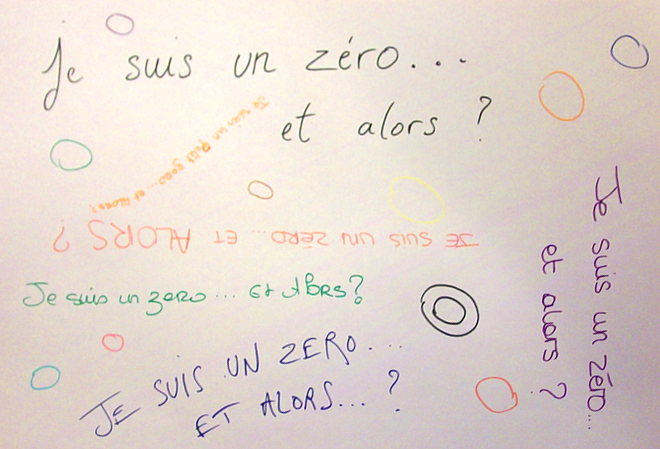 Je suis un zéro...
et alors ?
Je suis un petit zéro... et alors !
JE SUIS UN ZÉRO... ET ALORS ?
Je suis un zero... et alors?
JE SUIS UN ZERO...
ET ALORS...?
Je suis un zéro...
et alors ?